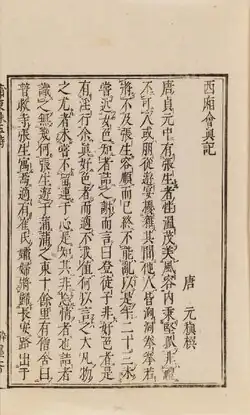 西廂會真記
唐　元稹撰
唐貞元中有張生者性温茂美風容内秉堅孤非禮
不可入或朋從遊宴擾雜其間他人皆洶洶拳拳若
將不及張生容順而已終不能亂以是年二十三未
嘗近女色知者詰之謝而言曰登徒子非好色者是
有淫行余真好色者而適不我值何以言之大凡物
之尤者未嘗不留連于心是知其非忘情者也詰者
識之無幾何張生遊于蒲蒲之東十餘里有僧舍曰
普救寺張生寓焉適有崔氏孀婦將歸長安路出于